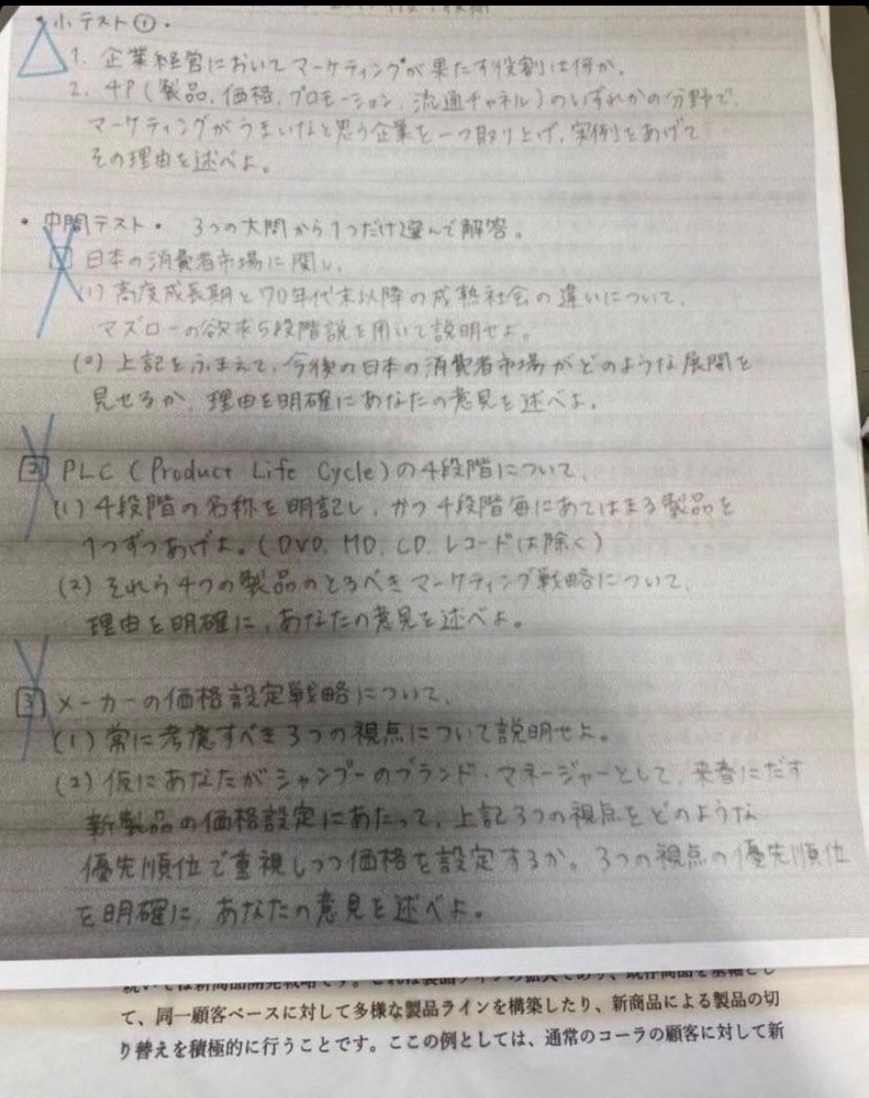 ・小テスト①・
1. 企業経営においてマーケティングが果たす役割は何か。
2. 4P(製品、価格、プロモーション、流通チャネル)のいずれかの分野で、
マーケティングがうまいなと思う企業を一つ取り上げ、実例をあげて
その理由を述べよ。
・中間テスト・ 3つの大問から1つだけ選んで解答。
1 日本の消費者市場に関し、
(1) 高度成長期と70年代末以降の成熟社会の違いについて、
マズローの欲求5段階説を用いて説明せよ。
(2) 上記をふまえて、今後の日本の消費者市場がどのような展開を
見せるか、理由を明確にあなたの意見を述べよ。
2 PLC (Product Life Cycle)の4段階について、
(1) 4段階の名称を明記し、かつ4段階毎にあてはまる製品を
1つずつあげよ。(DVD, MD, CD, レコードは除く)
(2) それら4つの製品のとるべきマーケティング戦略について、
理由を明確に、あなたの意見を述べよ。
3 メーカーの価格設定戦略について、
(1) 常に考慮すべき3つの視点について説明せよ。
(2) 仮にあなたがシャンプーのブランド・マネージャーとして、来春にだす
新製品の価格設定にあたって、上記3つの視点をどのような
優先順位で重視しつつ価格を設定するか。3つの視点の優先順位
を明確に、あなたの意見を述べよ。
続いては新商品開発戦略です。これは製品ラインの拡大であり、既存商品を基軸とし
て、同一顧客ベースに対して多様な製品ラインを構築したり、新商品による製品の切
り替えを積極的に行うことです。ここの例としては、通常のコーラの顧客に対して新